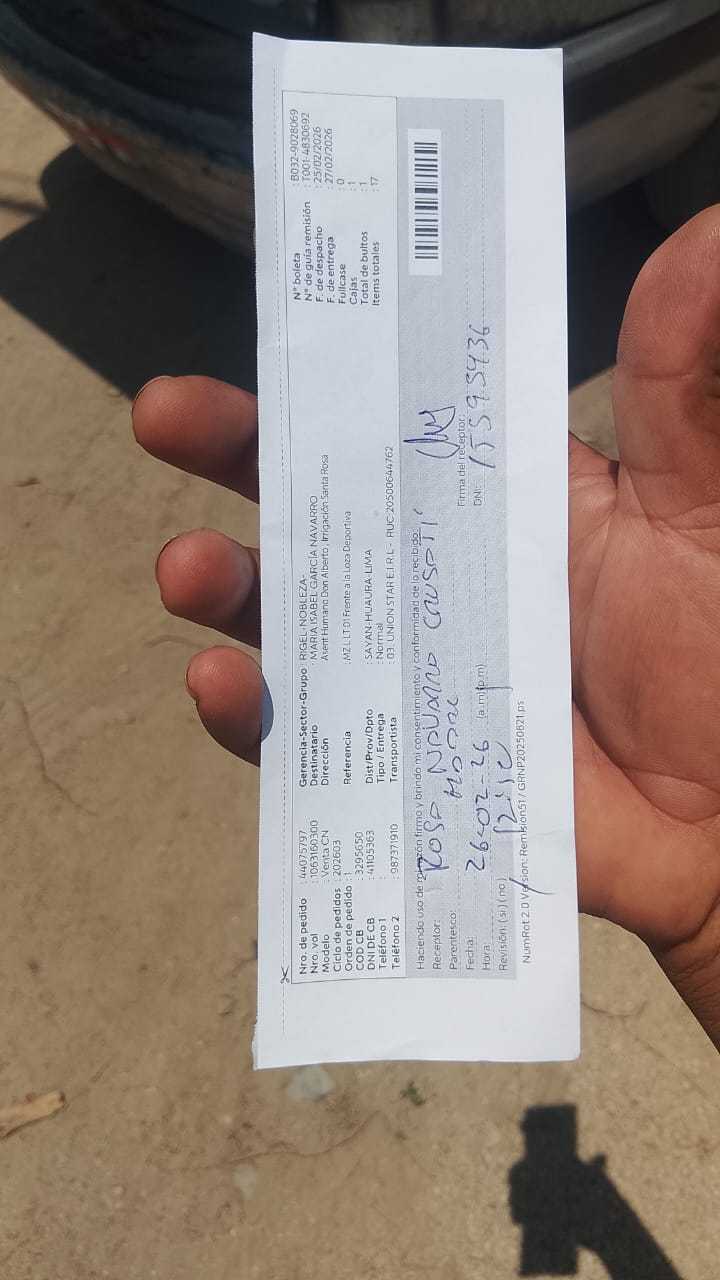 Nro. de pedido : 44075797
Nro. vol : 1063160300
Modelo Venta CN
Ciclo de pedidos : 202603
Orden de pedido : 1
COD CB : 3295650
DNI DE CB : 41105363
Teléfono 1 :
Teléfono 2 : 987371910
Gerencia-Sector-Grupo : RIGEL-NOBLEZA-
Destinatario : MARIA ISABEL GARCÍA NAVARRO
Dirección Asent Humano Don Alberto , Irrigación Santa Rosa
Referencia : MZ L LT 01 Frente a la Loza Deportiva
Dist/Prov/Dpto : SAYAN-HUAURA-LIMA
Tipo / Entrega : Normal
Transportista : 03. UNION STAR E.I.R.L - RUC:20500644762
N° boleta : B032-9028069
N° de guía remisión : T001-4830692
F. de despacho : 25/02/2026
F. de entrega : 27/02/2026
Fullcase : 0
Cajas : 1
Total de bultos : 1
Items totales : 17
Haciendo uso de mi razón firmo y brindo mi consentimiento y conformidad de lo recibido.
Receptor: ROSA NAVARRO
Parentesco:
Fecha: 26-02-26
Hora: (a.m)(p.m)
Revisión: ( si ) ( no )
Firma del receptor:
DNI: 15595936
NumRot 2.0 Version: Remision51 / GRNP20250821.ps